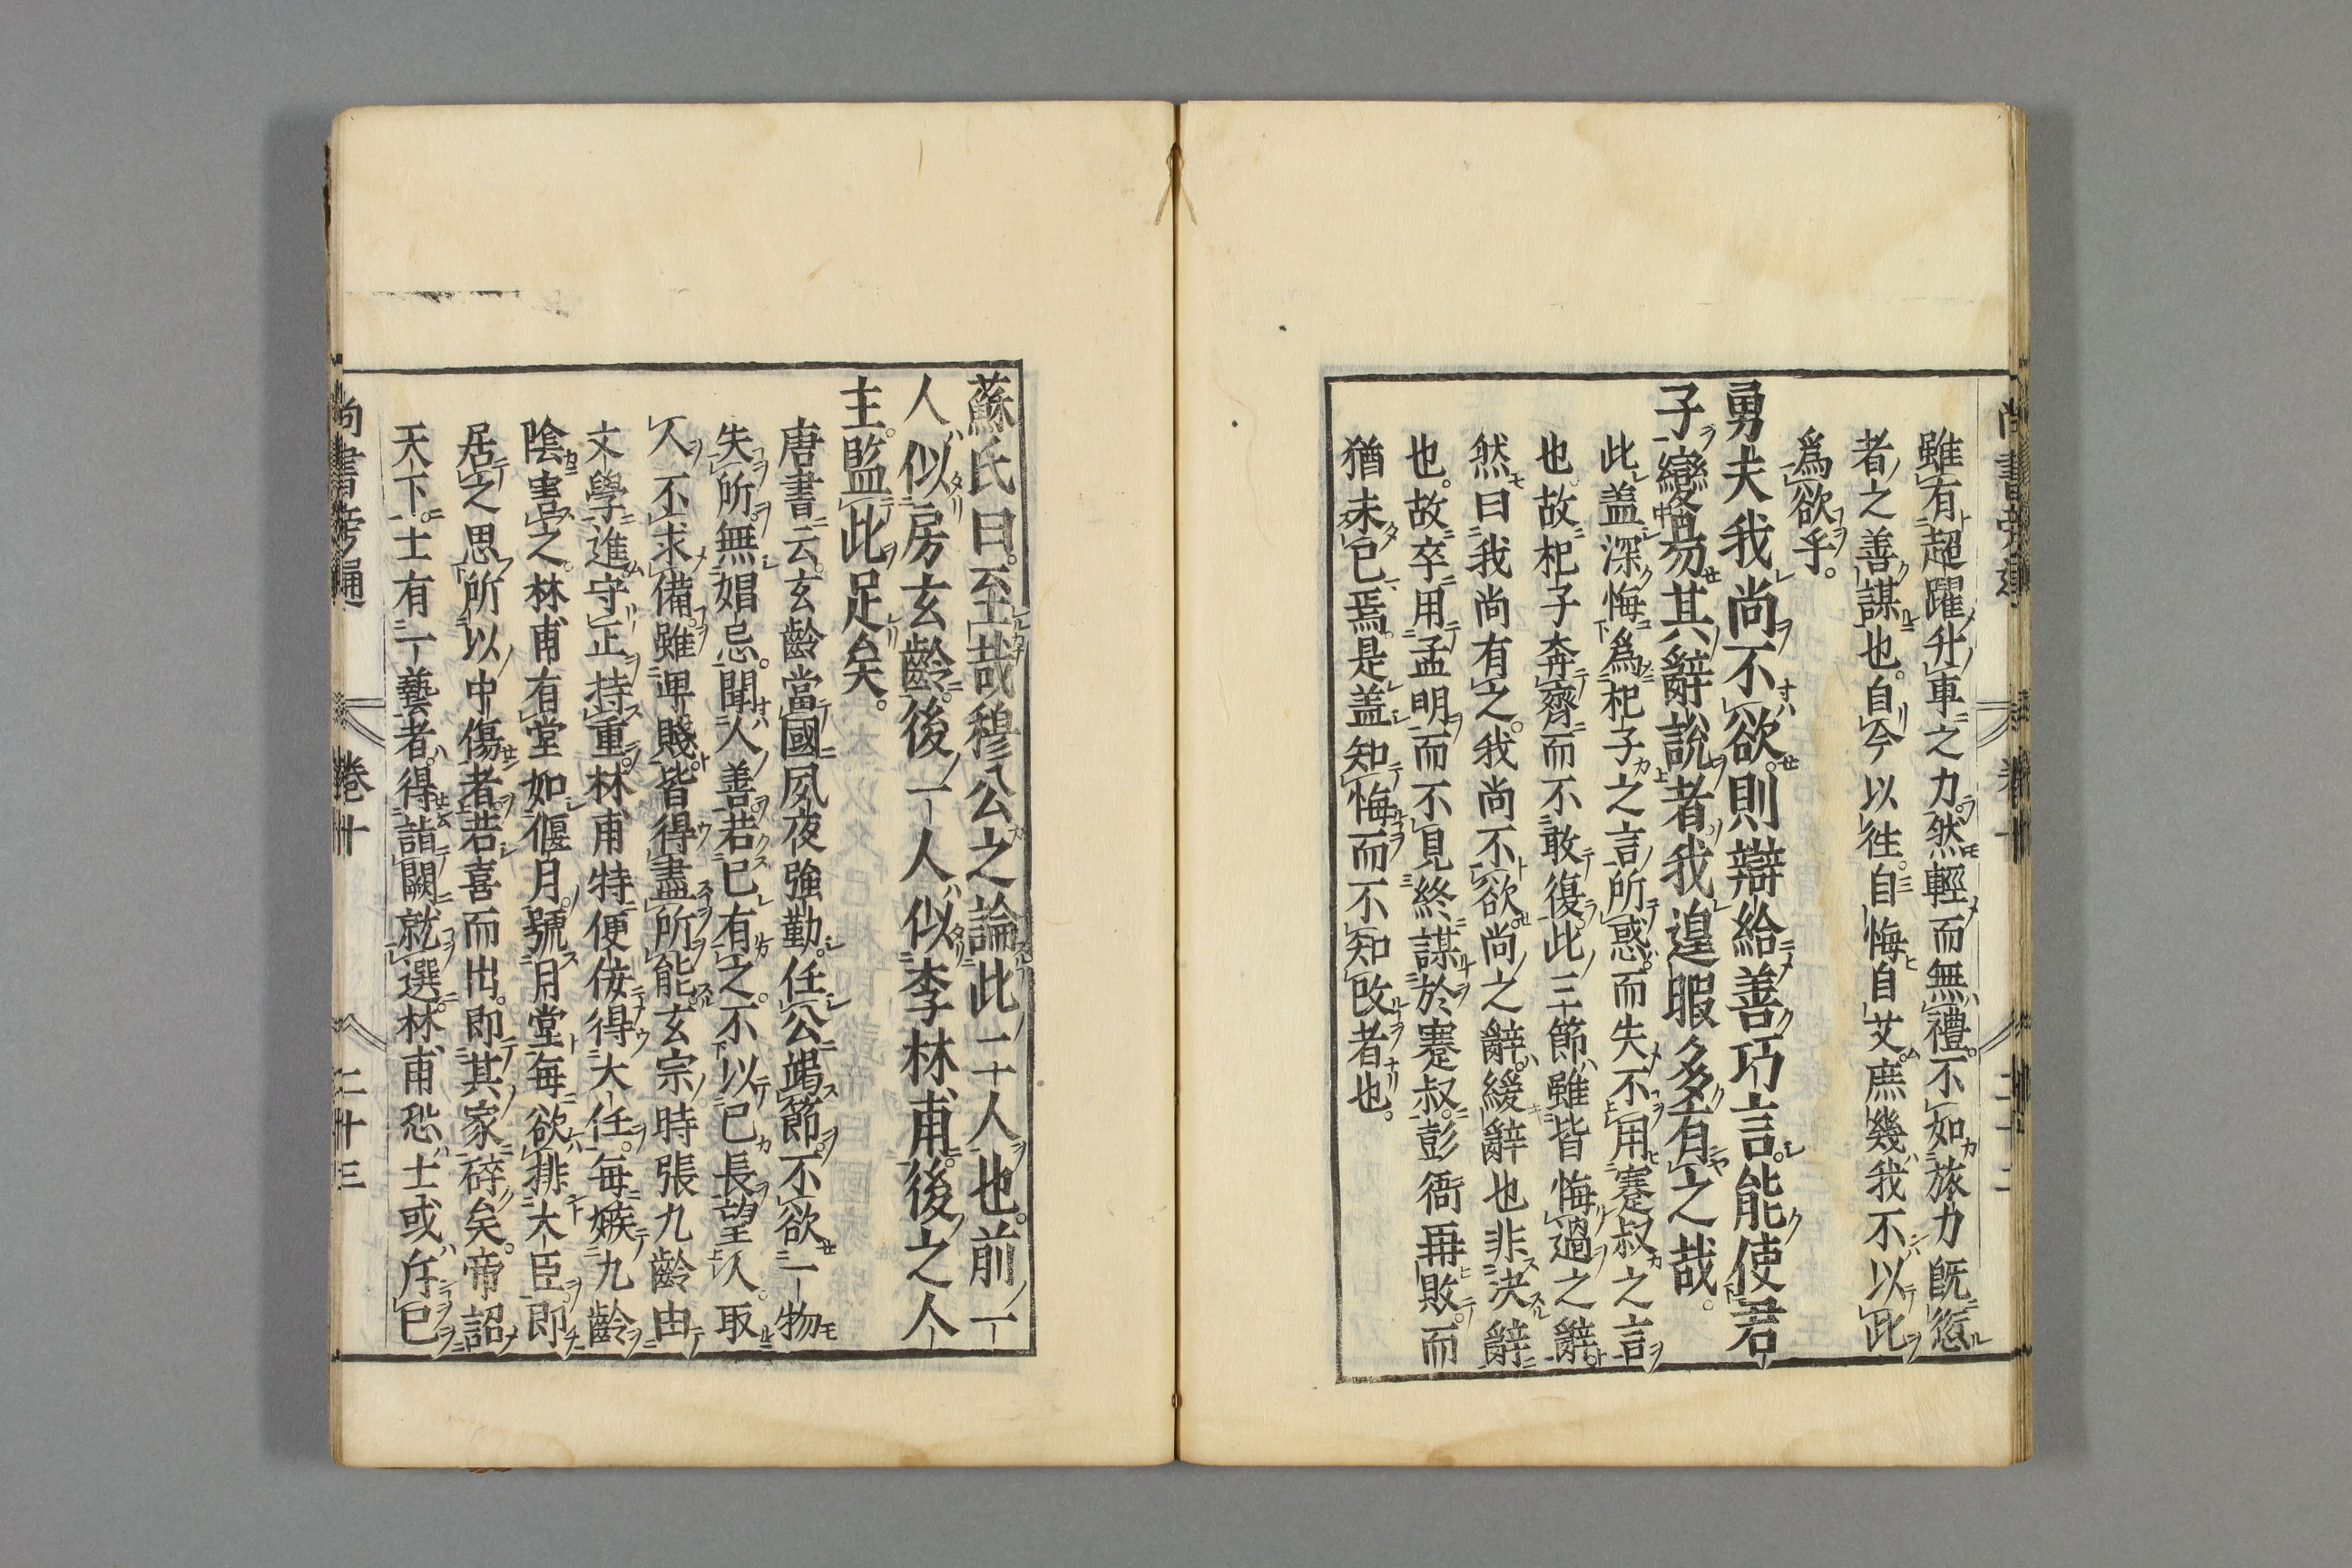 雖有超躍升車之力。然輕而無禮。不如旅力既愆
者之善謀也。自今以徃。自悔自艾。庶幾我不以此
爲欲乎。
勇夫我尚不欲。則辯給善巧言。能使君
子變易其辭說者。我遑暇多有之哉。
此盖深悔爲杞子之言所惑。而失不用蹇叔之言
也。故杞子奔齊而不敢復。此三節雖皆悔過之辭。
然曰我尚有之。我尚不欲。尚之辭。緩辭也非决辭
也。故卒用孟明而不見終謀於蹇叔。彭衙再敗。而
猶未已焉。是盖知悔而不知改者也。
蘇氏曰。至哉穆公之論此二人也。前一
人似房玄齡。後一人似李林甫。後之人
主。監此足矣。
唐書云。玄齡當國夙夜強勤。任公竭節。不欲一物
失所。無娼忌。聞人善。若已有之。不以已長望人。取
人不求備。雖卑賤。皆得盡所能。玄宗時張九齡由
文學進。守正持重。林甫特便佞得大任。每嫉九齡
陰害之。林甫有堂如偃月。號月堂。每欲排大臣。即
居之思所以中傷者。若喜而出。即其家碎矣。帝詔
天下。士有一藝者。得詣闕就選。林甫恐士或斥已
尚書旁通 卷十 二十三